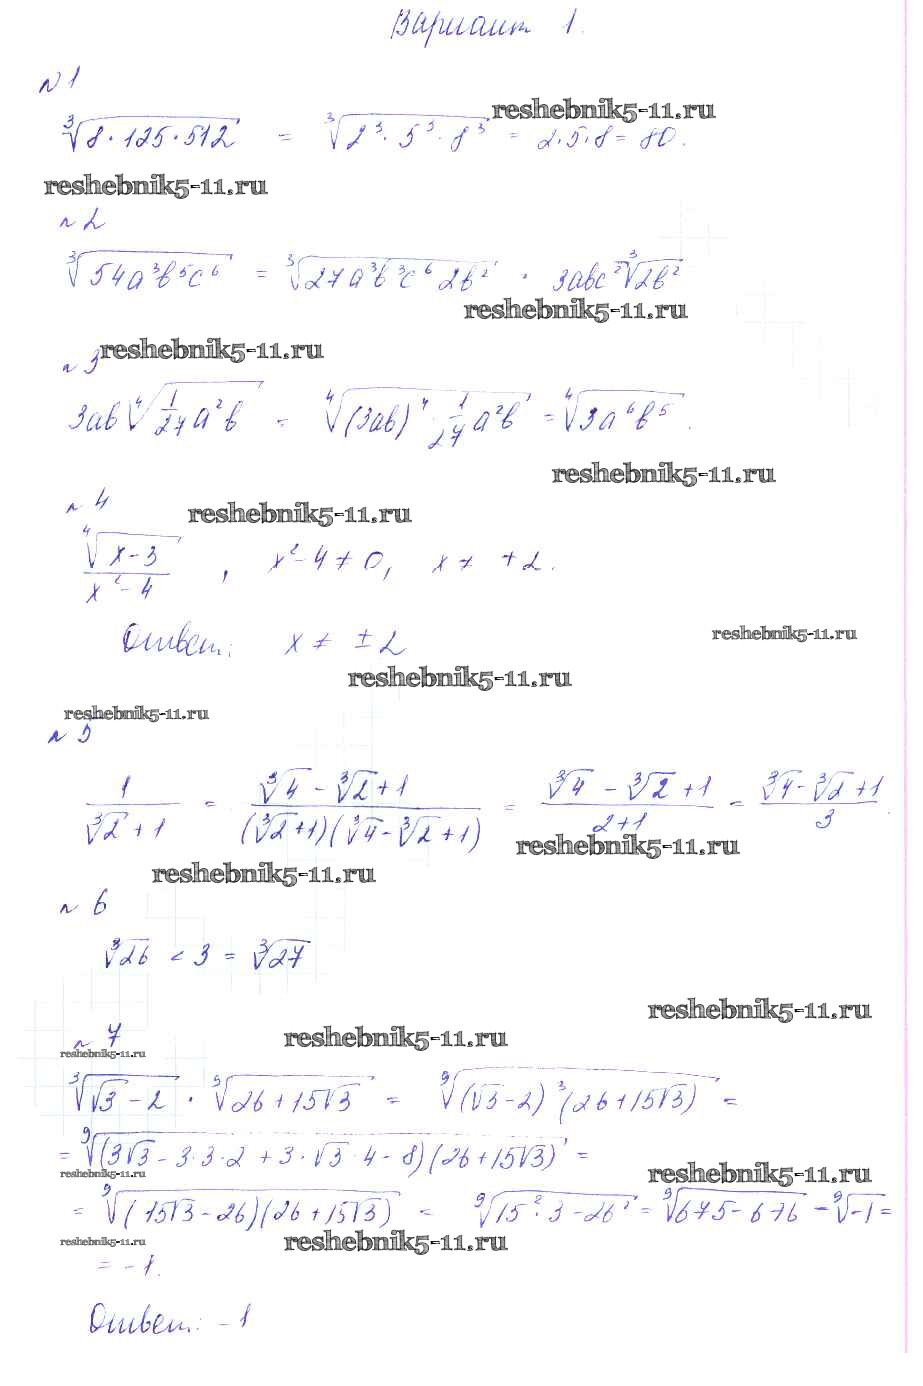 Вариант 1.
№1
∛(8·125·512) = ∛(2³·5³·8³) = 2·5·8 = 80.
reshebnik5-11.ru
reshebnik5-11.ru
№2
∛(54a³b⁵c⁶) = ∛(27a³b³c⁶2b²) · 3abc²∛(2b²)
reshebnik5-11.ru
reshebnik5-11.ru
№3
3ab∜(1/27 a²b) = ∜((3ab)⁴·1/27 a²b) = ∜(3a⁶b⁵).
reshebnik5-11.ru
№4
reshebnik5-11.ru
∜(x-3)/(x²-4), x²-4≠0, x≠ +2.
Ответ: x ≠ ±2
reshebnik5-11.ru
reshebnik5-11.ru
reshebnik5-11.ru
№5
1/(∛2+1) = (∛4-∛2+1)/((∛2+1)(∛4-∛2+1)) = (∛4-∛2+1)/(2+1) = (∛4-∛2+1)/3.
reshebnik5-11.ru
reshebnik5-11.ru
№6
∛26 < 3 = ∛27
reshebnik5-11.ru
№7
reshebnik5-11.ru
reshebnik5-11.ru
∛(√3-2) · ⁹√(26+15√3) = ⁹√((√3-2)³(26+15√3)) =
= ⁹√((3√3-3·3·2+3·√3·4-8)(26+15√3)) =
reshebnik5-11.ru
reshebnik5-11.ru
= ⁹√((15√3-26)(26+15√3)) = ⁹√(15²·3-26²) = ⁹√(675-676) = ⁹√(-1) =
reshebnik5-11.ru
reshebnik5-11.ru
= -1.
Ответ: -1